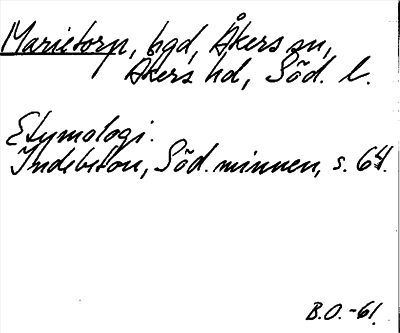 Marietorp, bgd, Åkers sn,
Åkers hd, Söd. l.
Etymologi.
Indebetou, Söd. minnen, s. 64.
B.O. -61.